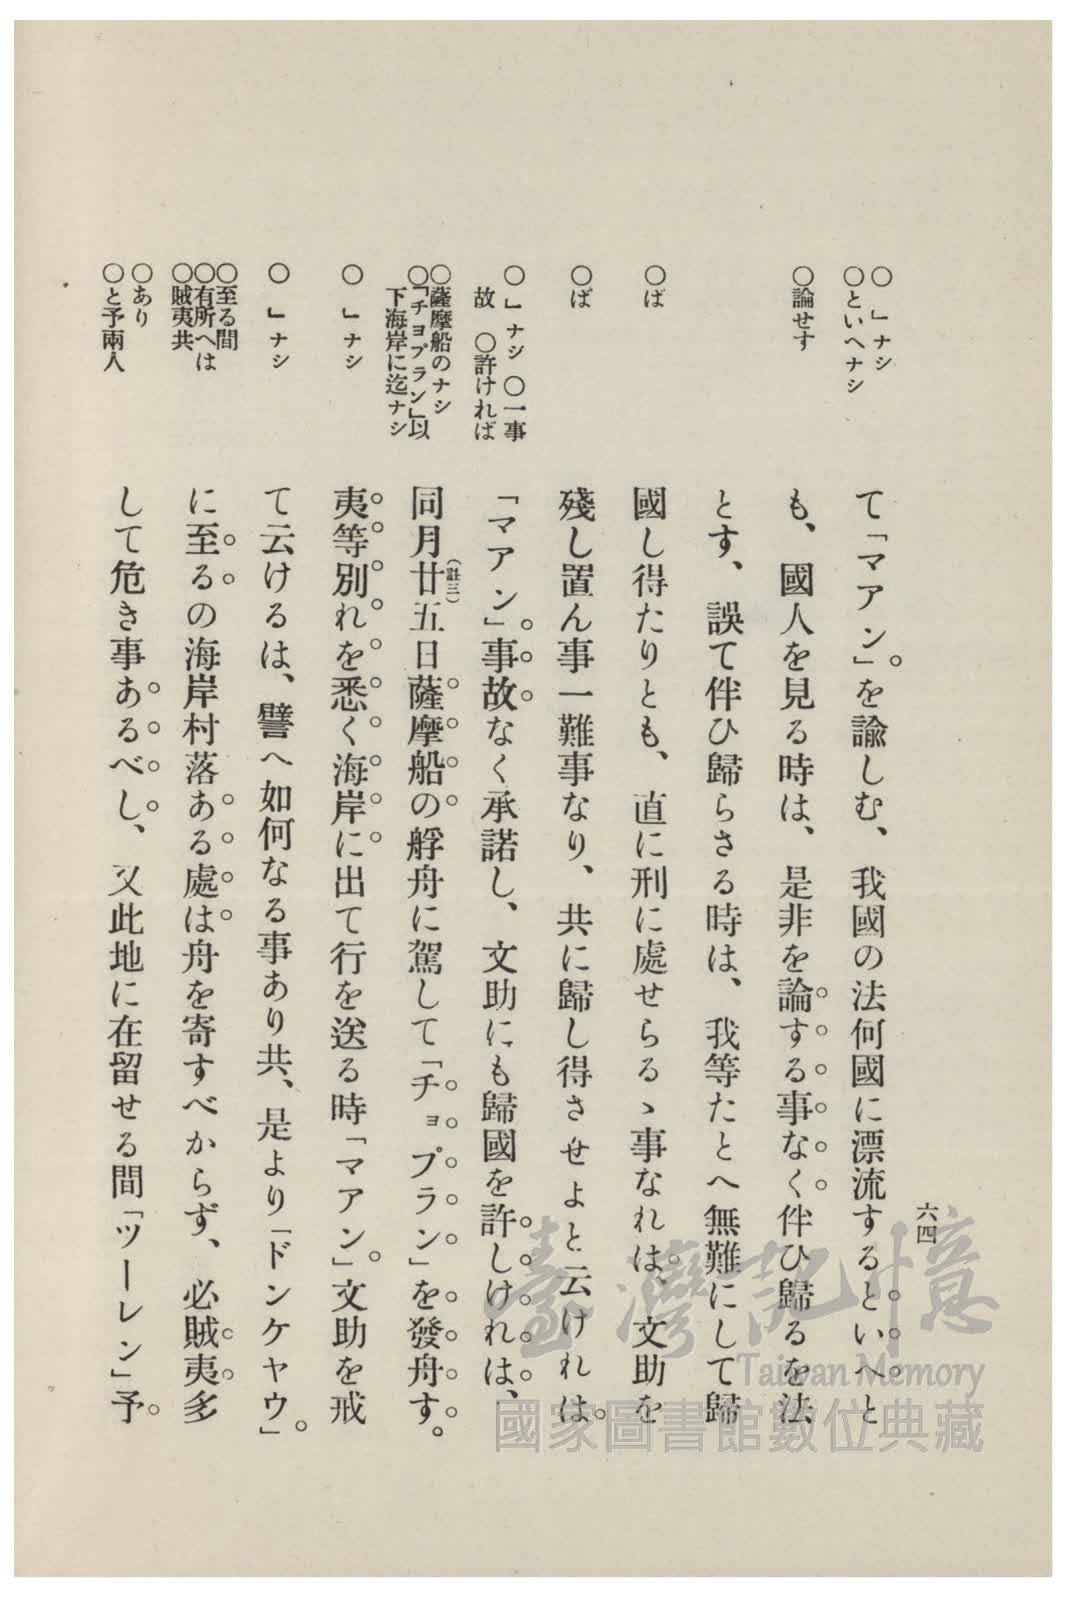 六四
○ 」ナシ
○といへナシ
○論せす
○ば
○ば
○ 」ナシ ○一事
故 ○許ければ
○薩摩船のナシ
○「チョプラン」以
下海岸に迄ナシ
○ 」ナシ
○ 」ナシ
○至る間
○有所へは
○賊夷共
○あり
○と予兩人
て「マアン」を諭しむ、我國の法何國に漂流するといへと
も、國人を見る時は、是非を論する事なく伴ひ歸るを法
とす、誤て伴ひ歸らさる時は、我等たとへ無難にして歸
國し得たりとも、直に刑に處せらるゝ事なれは、文助を
殘し置ん事一難事なり、共に歸し得させよと云けれは
「マアン」事故なく承諾し、文助にも歸國を許しけれは、
同月廿五日薩摩船の艀舟に駕して「チョプラン」を發舟す。
(註三)
夷等別れを悉く海岸に出て行を送る時「マアン」文助を戒
て云けるは、譬へ如何なる事あり共、是より「ドンケヤウ」
に至るの海岸村落ある處は舟を寄すべからず、必賊夷多
して危き事あるべし、又此地に在留せる間「ツーレン」予
臺灣記憶
Taiwan Memory
國家圖書館數位典藏